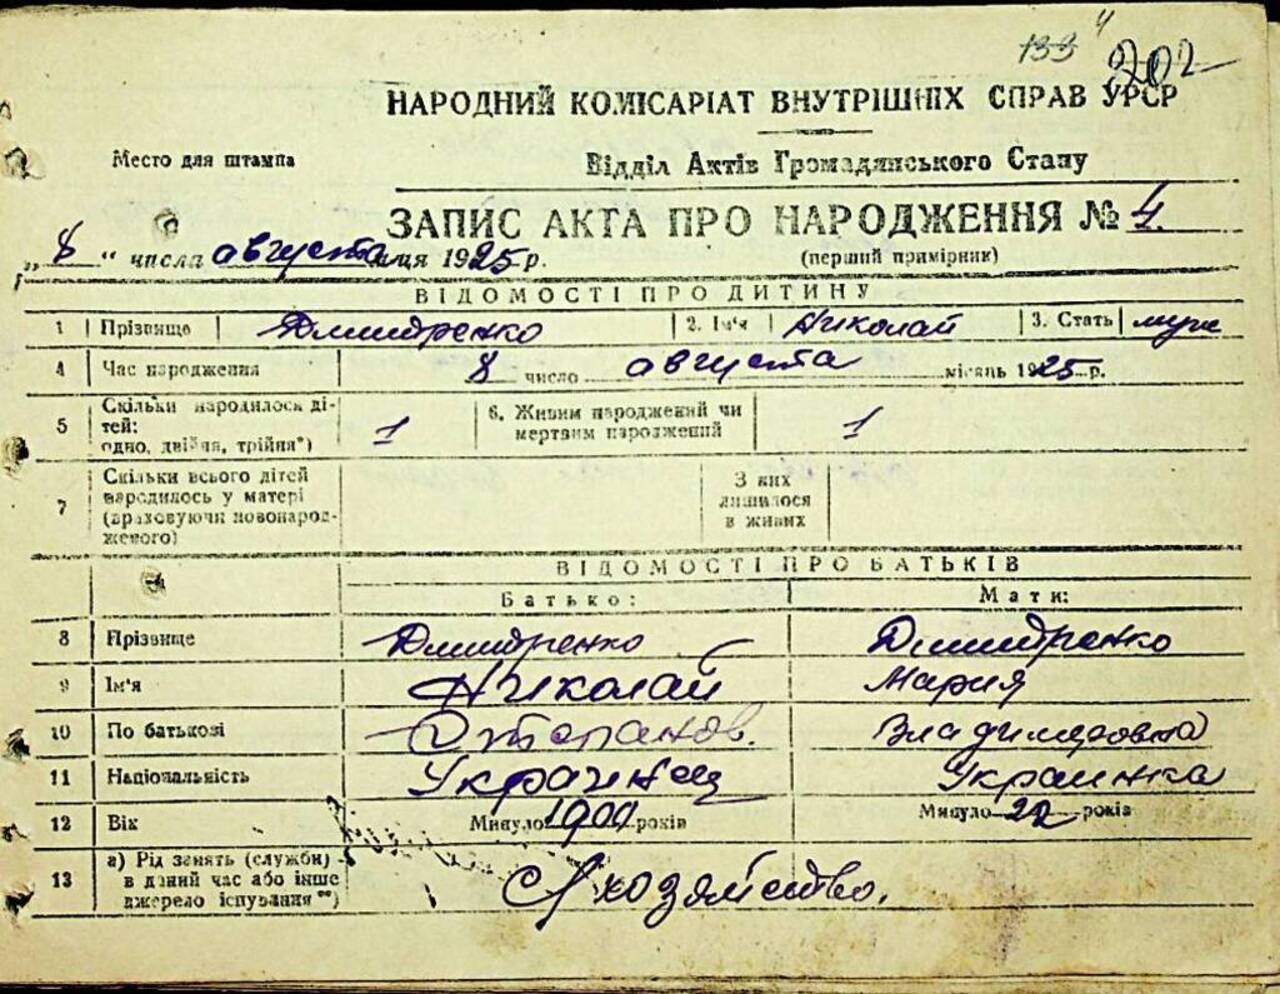 133 4 202
НАРОДНИЙ КОМІСАРІАТ ВНУТРІШНІХ СПРАВ УРСР
Место для штампа
Відділ Актів Громадянського Стану
ЗАПИС АКТА ПРО НАРОДЖЕННЯ № 4.
„8“ числа августа м-ця 1925 р.
(перший примірник)
ВІДОМОСТІ ПРО ДИТИНУ
1 Прізвище Дмидренко 2. Ім'я Николай 3. Стать муж
4 Час народження 8 число августа місяць 1925 р.
5 Скільки народилося ді-
тей:
одно, двійня, трійня*) 1
6. Живим народжений чи
мертвим народжений 1
7 Скільки всього дітей
народилось у матері
(враховуючи новонарод-
женого)
З них
лишилося
в живих
ВІДОМОСТІ ПРО БАТЬКІВ
Батько: Мати:
8 Прізвище Дмидренко Дмидренко
9 Ім'я Николай Мария
10 По батькові Владимировна
11 Національність Украинец Украинка
12 Вік Минуло років Минуло 22 років
13 а) Рід занять (служби)
в даний час або інше
джерело існування**) С/хозяйство.